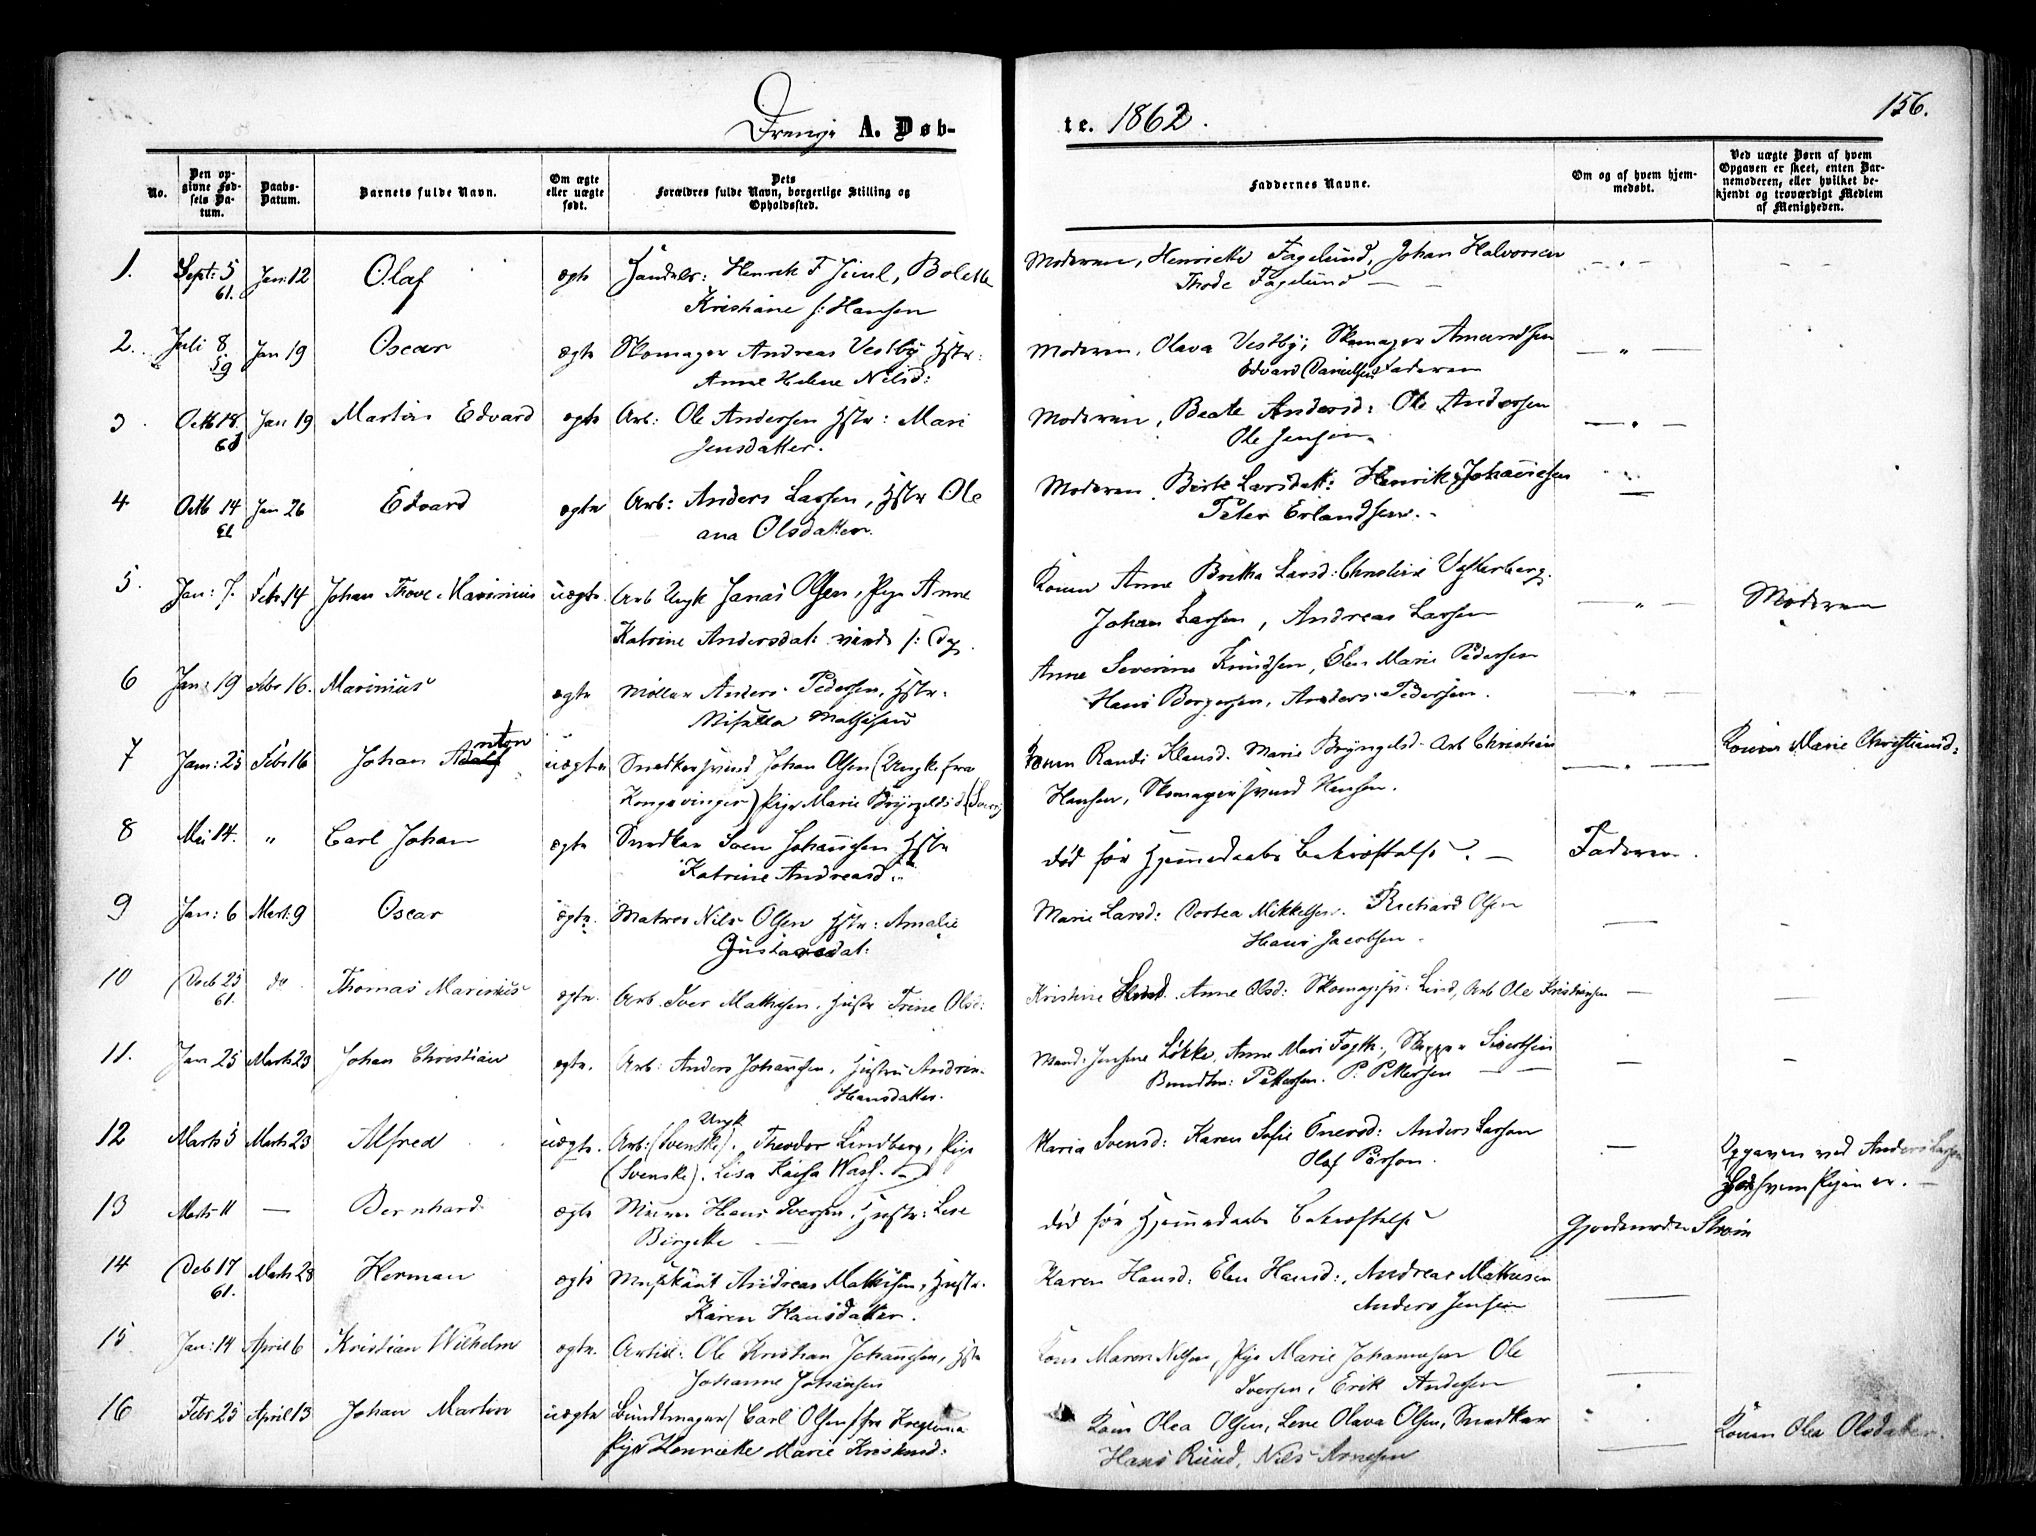 Drenge A. Døb-
te. 1862.
156.
No.
Den op-
givne Fød-
sels Da-
tum.
Daabs-
Datum.
Barnets fulde Navn.
Om ægte
eller uægte
født.
Dets
Forældres fulde Navn, borgerlige Stilling og
Opholdssted.
Faddernes Navne.
Om og af hvem hjem-
medøbt.
Ved uægte Børn af hvem
Opgaven er skeet, enten Bar-
nemoderen, eller hvilket be-
kjendt og troværdigt Medlem
af Menigheden.
1. Sept: 5 Jan: 12 Olaf ægte Handels: Henrik F Juul, Bolette Moderen, Henriette Fagelund, Johan Halvorsen
61. Kristiane f: Hansen Thode Fagelund
2. Juli 8 Jan 19 Oscar ægte Skomager Andreas Vestby Hstr: Moderen, Olava Vestby, Skomager Amundsen
59 Anne Helene Nilsd: Edvard Danielsen Faderen
3. Octb 18 Jan 19 Martin Edvard ægte Arb: Ole Andersen Hstr: Mari Moderen, Beate Andersd: Ole Andersen
61 Jensdatter. Ole Jensen
4 Octb 14 Jan 26 Edvard ægte Arb: Anders Larsen, Hstr Ole Moderen Berte Larsdatt: Henrik Johannesen
61 ana Olsdatter. Peter Erlandsen.
5. Jan: 7. Febr. 14 Johan Thove Marinius uægte. Arb Ungk Jonas Olsen, Pige Anne Konen Anne Britha Larsd: Christine Vesterberg. Moderen
Katrine Andersdat: Johan Larsen, Andreas Larsen
6 Jan: 19 Febr 16. Marinius ægte Møller Anders Pedersen, Hstr. Anne Severine Knudsen, Elen Marie Pedersen
Mathisen Hans Borgersen, Anders Pedersen.
nton
7 Jan: 25 Febr 16 Johan Adolf uægte Snedkersvend Johan Olsen (Ungk. fra Konen Randi Klausd. Marie Bryngelsd. Arb Christian Konen Marie Christiansd:
Kongsvinger) Pige Marie Bryngelsd Hansen, Skomagersvend Hansen.
8 14. " Carl Johan ægte Snedker Sven Johansen Hstr død før Hjemmedaabs Bekræftelse. Faderen.
Katrine Andreasd.
9 Jan: 6 Mart: 9 Oscar ægte. Matros Nils Olsen Hstr: Amalie Marie Larsd: Dortea Mikkelsen. Richard Olsen
Gustavsdat: Hans Jacobsen.
10 Decb 25 do Thomas Marinius ægte. Arb. Iver Mathisen, Hustr Trine Olsd: Kristine Anne Olsd: Lind, Arb Ole Kristiansen
61.
11. Jan 25 Marts 23 Johan Christian ægte. Arb: Anders Johansen, Hustru Andrine Løkke, Anne Mari Skipper Sivertsen
Hansdatter. Bundtm: Pettersen. P. Pettersen
12 Marts 5 Marts 23 Alfred uægte. Arb: (Svenske). Ungk Theodor Lindberg, Pige Maria Svensd: Karen Sofie Anders Larson Opgaven ved Anders Larsen
(Svenske). Lisa Kaisa Olaf Person. hos hvem Pigen er.
13 Marts 11 Bernhard ægte Murer Hans Iversen, Hustr: Lise død før Hjemmedaabs Bekræftelse Gjordemoder Strøm
Birgitte
14 Decb 17 Marts 28 Herman ægte Musikant Andreas Mathisen, Hustr. Karen Hansd: Elen Hansd:, Andreas Mathisen
61. Karen Hansdatter. Anders Jensen
15 Jan: 14 April 6 Kristian Wilhelm ægte. Ole Kristian Johansen, Hstr Kone Maren Nilsen, Pige Marie Johannesen Ole
Johanne Johansen Iversen, Erik Andersen
16 Febr 25 April 13 Johan Martin uægte Bundtmager Carl Olsen fra Kone Olea Olsen, Lene Olava Olsen, Snedker Konen Olea Olsdatter.
Pige Henriette Marie Hans Ruud, Nils Arnesen